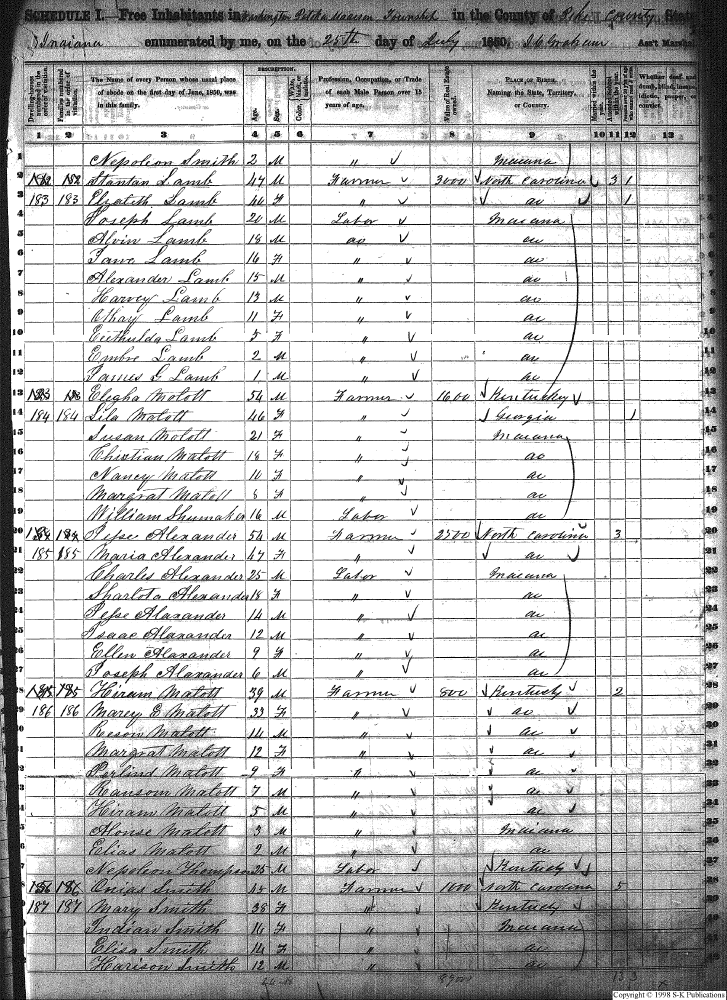 SCHEDULE I. Free Inhabitants in Washington Patoka Madison Township in the County of Pike County State
Indiana enumerated by me, on the 25th day of July 1850. Ass't Marshal
DESCRIPTION.
The Name of every Person whose usual place of abode on the first day of June, 1850, was in this family.
Age. Sex.
Profession, Occupation, or Trade of each Male Person over 15 years of age.
Value of Real Estate owned.
PLACE OF BIRTH. Naming the State, Territory, or Country.
1 2 3 4 5 6 7 8 9 10 11 12 13
1 Nepoleon Smith 2 M " Indiana
2 182 182 Stantan Lamb 47 M Farmer 3000 North Carolina 3 1
3 183 183 Elzabeth Lamb 44 F " do 1
4 Joseph Lamb 20 M Labor Indiana
5 Alvin Lamb 18 M do do
6 Jane Lamb 16 F " do
7 Alexander Lamb 15 M " do
8 Harvey Lamb 13 M " do
9 Lamb 11 F " do
10 Lamb 5 F " do
11 Embre Lamb 2 M " do
12 James G Lamb 1 M " do
13 183 183 Elegha Matott 54 M Farmer 1600 Kentucky
14 184 184 Lila Matott 46 F " Georgia 1
15 Susan Matott 21 F " Indiana
16 Christian Matott 18 F " do
17 Nancy Matott 10 F " do
18 Margrat Matott 8 F " do
19 William Shumaker 16 M Labor do
20 184 184 Jesse Alexander 54 M Farmer 2500 North Carolina 3
21 185 185 Maria Alexander 47 F " do
22 Charles Alexander 25 M Labor Indiana
23 Sharlota Alexander 18 F " do
24 Jesse Alaxander 14 M " do
25 Isaac Alaxander 12 M " do
26 Ellen Alaxander 9 F " do
27 Joseph Alaxander 6 M " do
28 185 185 Hiram Matott 39 M Farmer 800 Kentucky 2
29 186 186 Marey E Matott 33 F " do
30 Reson Matott 14 M " do
31 Margrat Matott 12 F " do
32 Perlind Matott 9 F " do
33 Ransom Matott 7 M " do
34 Hiram Matott 5 M " do
35 Alonse Matott 3 M " Indiana
36 Elias Matott 2 M " do
37 Nepoleon Thompson 25 M Labor Kentucky
38 186 186 Onias Smith 45 M Farmer 1000 North Carolina 5
39 187 187 Mary Smith 38 F " Kentucky
40 Indian Smith 16 F " Indiana
41 Eliza Smith 14 F " do
42 Harison Smith 12 M " do
Copyright © 1998 S-K Publications